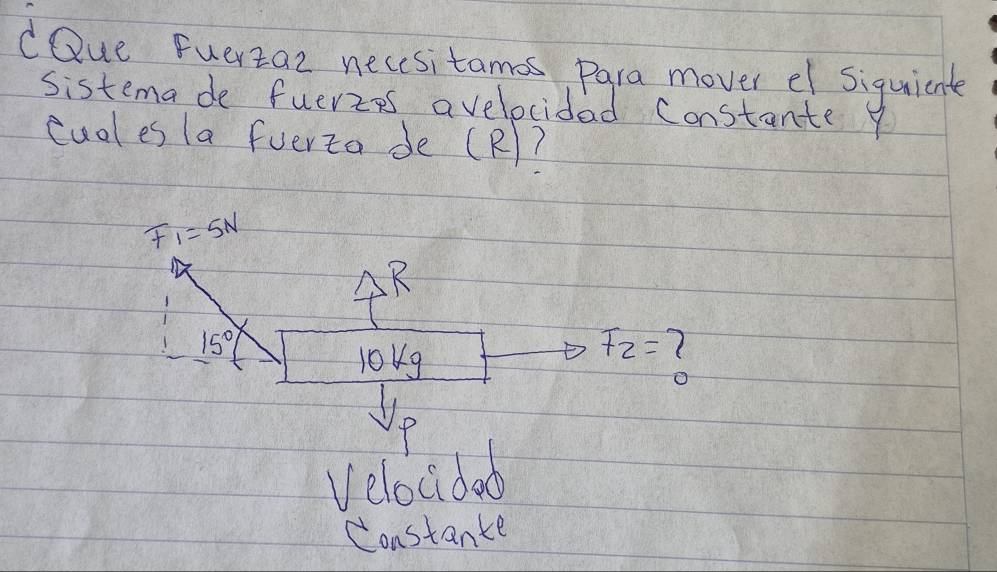 ¿Que Fuerzaz necesitamos Para mover el Siguiente
Sistema de fuerzas a velocidad Constante y
Cual es la fuerza de (R)?
F1=5N
R
15°
10Kg
F2=?
P
Velocidad
Constante